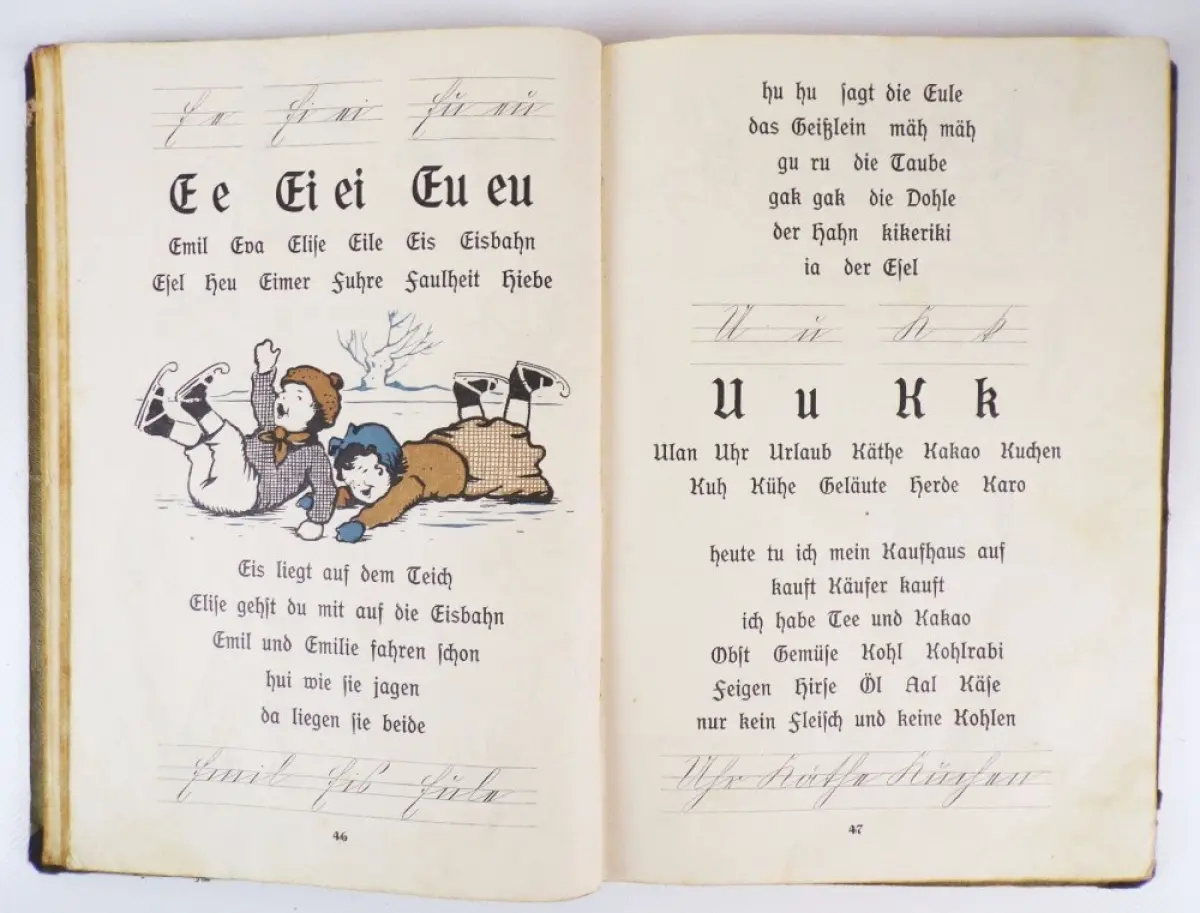 E e Ei ei Eu eu
E e Ei ei Eu eu
Emil Eva Elise Eile Eis Eisbahn
Esel Heu Eimer Fuhre Faulheit Hiebe
Eis liegt auf dem Teich
Elise gehst du mit auf die Eisbahn
Emil und Emilie fahren schon
hui wie sie jagen
da liegen sie beide
Emil Eis Eule
46
hu hu ſagt die Eule
das Geißlein mäh mäh
gu ru die Taube
gak gak die Dohle
der Hahn kikeriki
ia der Eſel
U u K k
U u K k
Ulan Uhr Urlaub Käthe Kakao Kuchen
Kuh Kühe Geläute Herde Karo
heute tu ich mein Kaufhaus auf
kauft Käufer kauft
ich habe Tee und Kakao
Obſt Gemüſe Kohl Kohlrabi
Feigen Hirſe Öl Aal Käſe
nur kein Fleiſch und keine Kohlen
Uhr Käthe Kuchen
47